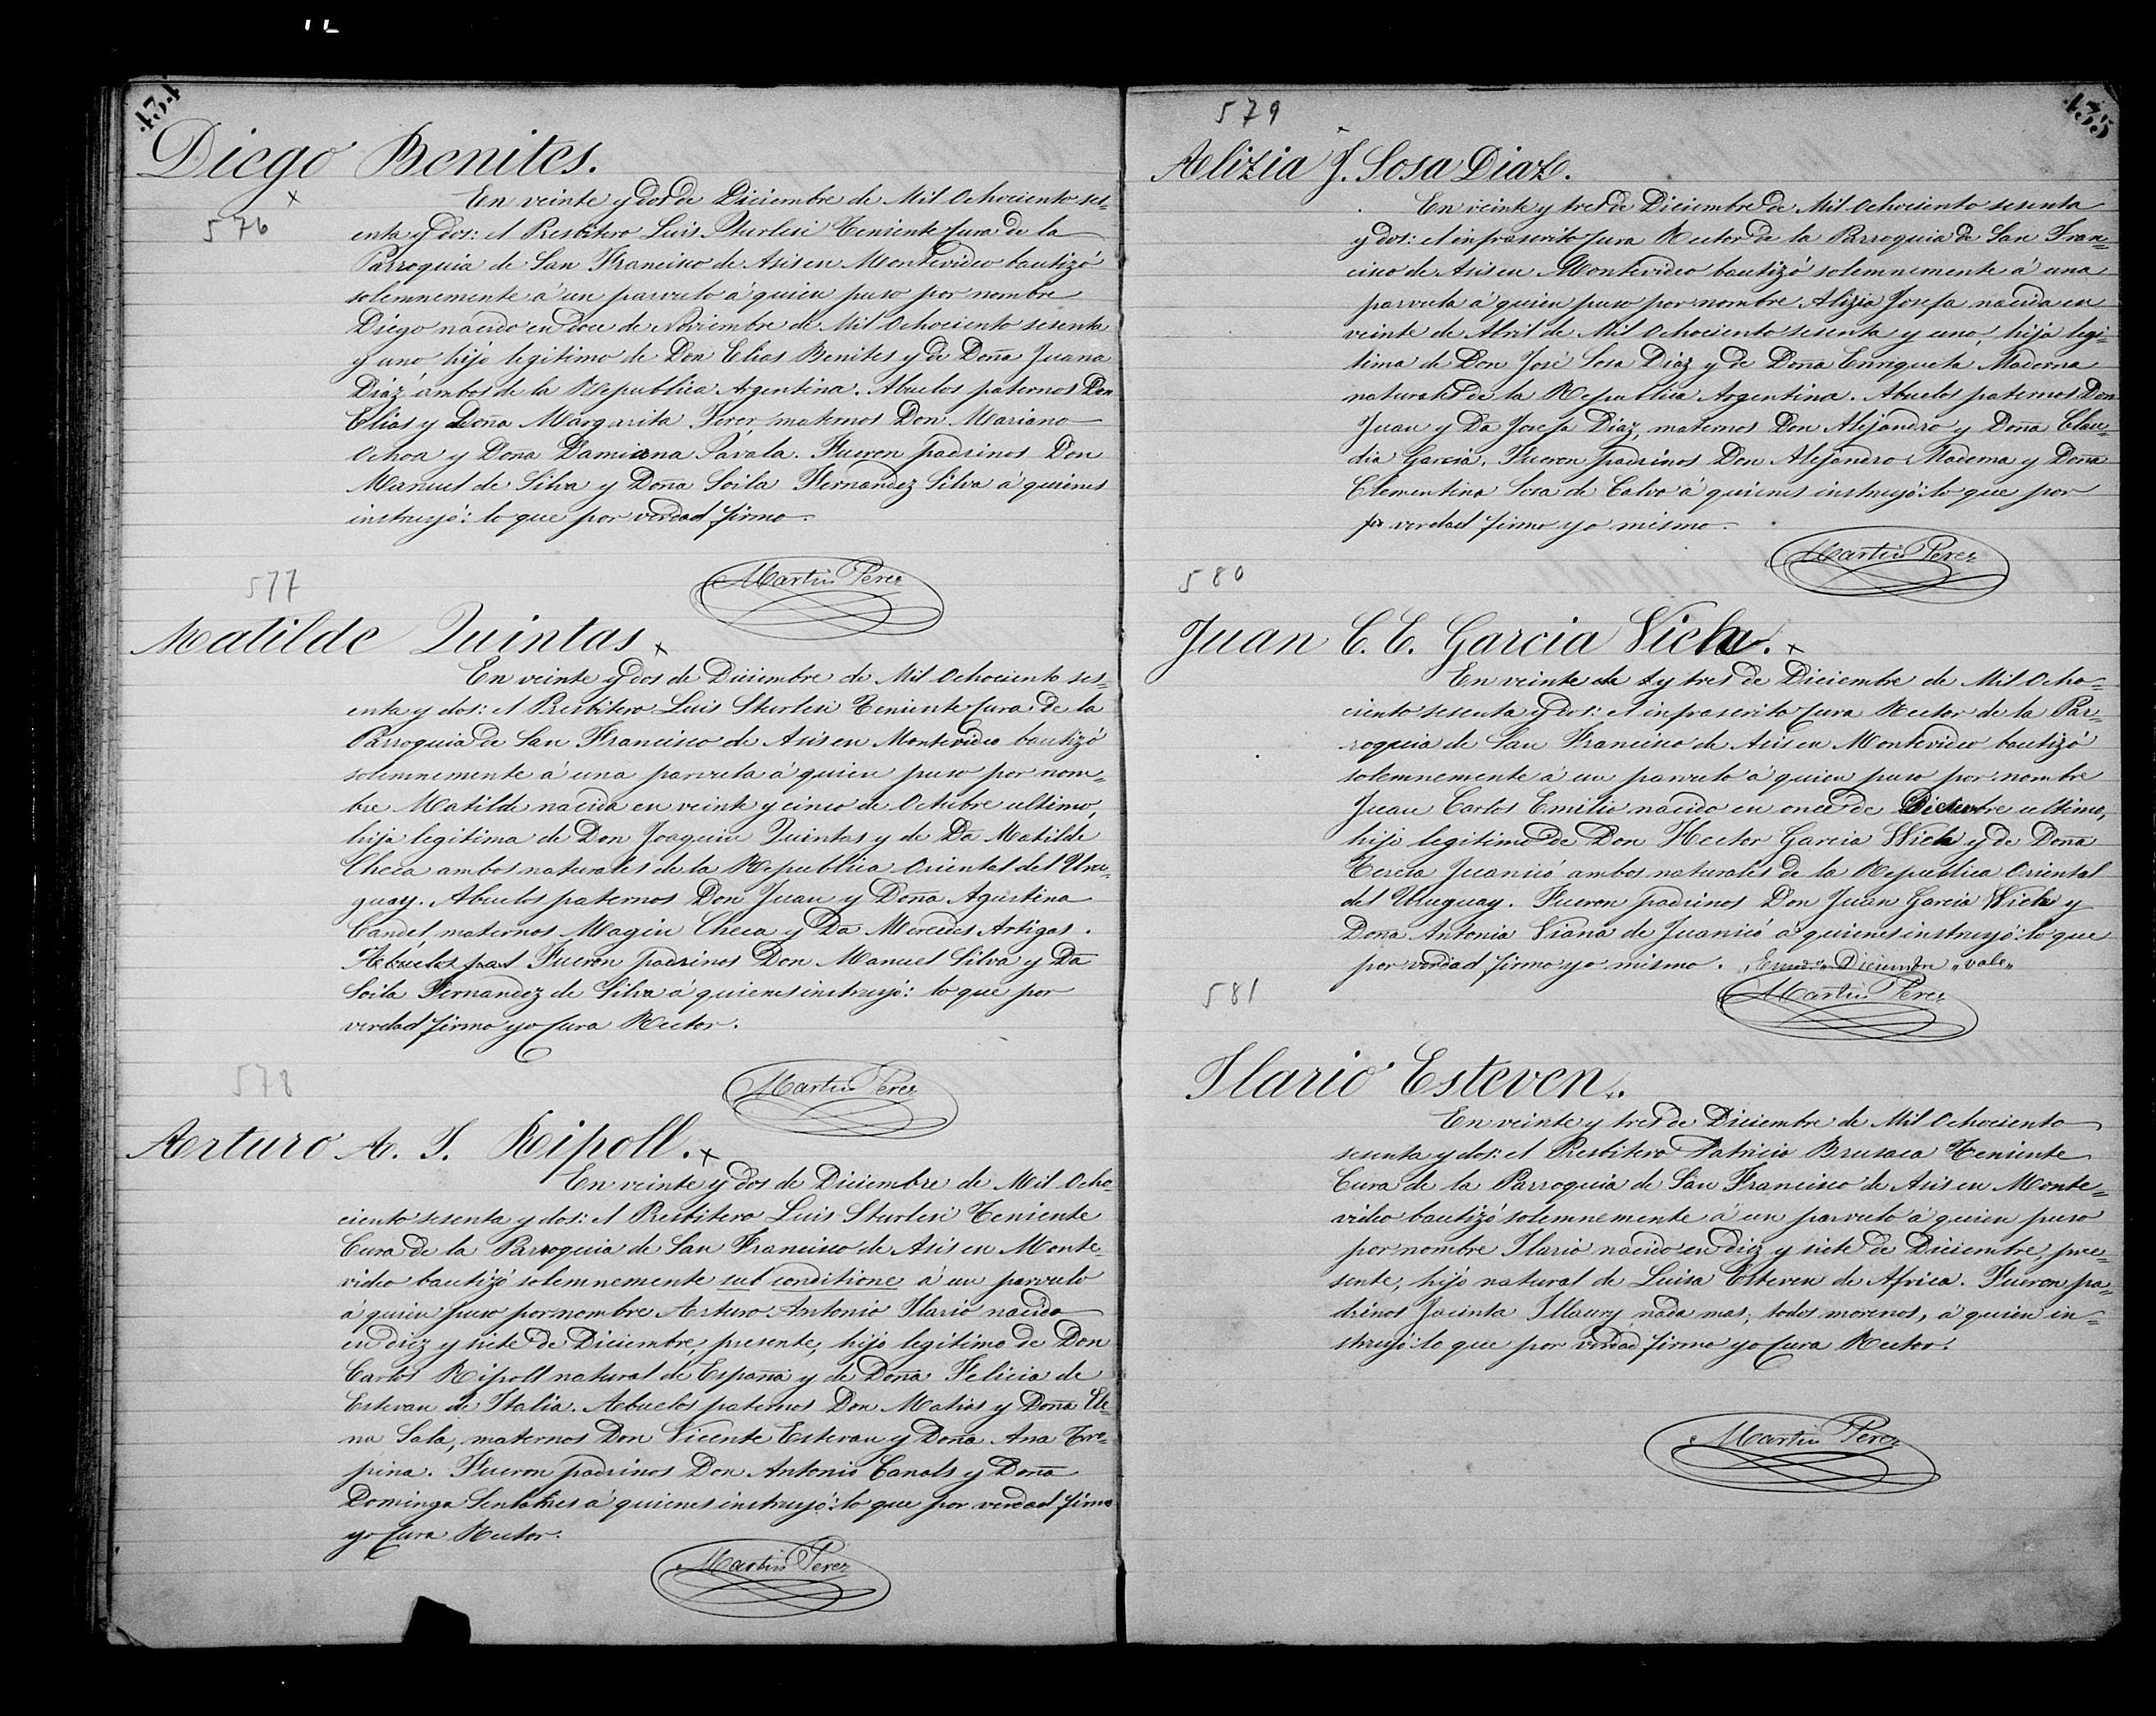 134
Diego Benites.
576
En veinte y dos de Diciembre de Mil Ochociento ses-
enta y dos: el Presbitero Luis Sturlesi Teniente Cura de la
Parroquia de San Francisco de Asis en Montevideo bautizó
solemnemente á un parvulo á quien puso por nombre
Diego nacido en doce de Noviembre de Mil Ochociento sesenta
y uno hijo legitimo de Don Elias Benites y de Doña Juana
Diaz ambos de la Republica Argentina. Abuelos paternos Don
Elias y Doña Margarita maternos Don Mariano
Ochoa y Doña Damiana Fueron padrinos Don
Manuel de Silva y Doña Soila Fernandez Silva á quienes
instruyó: lo que por verdad firmo.
Martin Perez
577
Matilde Quintas
En veinte y dos de Diciembre de Mil Ochociento ses-
enta y dos: el Presbitero Luis Sturlesi Teniente Cura de la
Parroquia de San Francisco de Asis en Montevideo bautizó
solemnemente á una parvula á quien puso por nom-
bre Matilde nacida en veinte y cinco de Octubre ultimo,
hija legitima de Don Joaquin Quintas y de Da Matilde
Checa ambos naturales de la Republica Oriental del Uru-
guay. Abuelos paternos Don Juan y Doña Agustina
Candel, maternos Magin Checa y Da Mercedes Artigas.
Abuelos pat Fueron padrinos Don Manuel Silva y Da
Soila Fernandez de Silva á quienes instruyó: lo que por
verdad firmo yo Cura Rector.
Martin Perez
578
Arturo A. I. Ripoll.
En veinte y dos de Diciembre de Mil Ocho-
ciento sesenta y dos: el Presbitero Luis Sturlesi Teniente
Cura de la Parroquia de San Francisco de Asis en Monte-
video bautizó solemnemente sub conditione á un parvulo
á quien puso por nombre Arturo Antonio Ilario nacido
en diez y siete de Diciembre, presente, hijo legitimo de Don
Carlos Ripoll natural de España y de Doña Felicia de
Estevan de Italia. Abuelos paternos Don Matias y Doña Ele-
na Sala, maternos Don Vicente Estevan y Doña Ana Tro-
pina. Fueron padrinos Don Antonio Canals y Doña
Dominga á quienes instruyó: lo que por verdad firmo
yo Cura Rector.
Martin Perez
135
579
Alizia J. Sosa Diaz.
En veinte y tres de Diciembre de Mil Ochociento sesenta
y dos: el infrascrito Cura Rector de la Parroquia de San Fran-
cisco de Asis en Montevideo bautizó solemnemente á una
parvula á quien puso por nombre Alizia Josefa nacida en
veinte de Abril de Mil Ochociento sesenta y uno, hija legi-
tima de Don José Sosa Diaz y de Doña Enriqueta Maderna
naturales de la Republica Argentina. Abuelos paternos Don
Juan y Da Josefa Diaz, maternos Don Alejandro y Doña Clau-
dia Garcia. Fueron padrinos Don Alejandro Maderna y Doña
Clementina Sosa de Calvo á quienes instruyó: lo que por
por verdad firmo yo mismo.
Martin Perez
580
Juan C. E. Garcia Wich.
En veinte de t y tres de Diciembre de Mil Ocho-
ciento sesenta y dos: el infrascrito Cura Rector de la Par-
roquia de San Francisco de Asis en Montevideo bautizó
solemnemente á un parvulo á quien puso por nombre
Juan Carlos Emilio nacido en once de Diciembre ultimo,
hijo legitimo de Don Hector Garcia Wich y de Doña
Teresa Juanicó ambos naturales de la Republica Oriental
del Uruguay. Fueron padrinos Don Juan Garcia Wich y
Doña Antonia Viana de Juanicó á quienes instruyó: lo que
por verdad firmo yo mismo. Emdo "Diciembre" vale
Martin Perez
581
Ilario Esteven.
En veinte y tres de Diciembre de Mil Ochociento
sesenta y dos: el Presbitero Patricio Brusaca Teniente
Cura de la Parroquia de San Francisco de Asis en Monte-
video bautizó solemnemente á un parvulo á quien puso
por nombre Ilario nacido en diez y siete de Diciembre, pre-
sente, hijo natural de Luisa Esteven de Africa. Fueron pa-
drinos Jacinta Illaury nada mas, todos morenos, á quien in-
struyó: lo que por verdad firmo yo Cura Rector.
Martin Perez